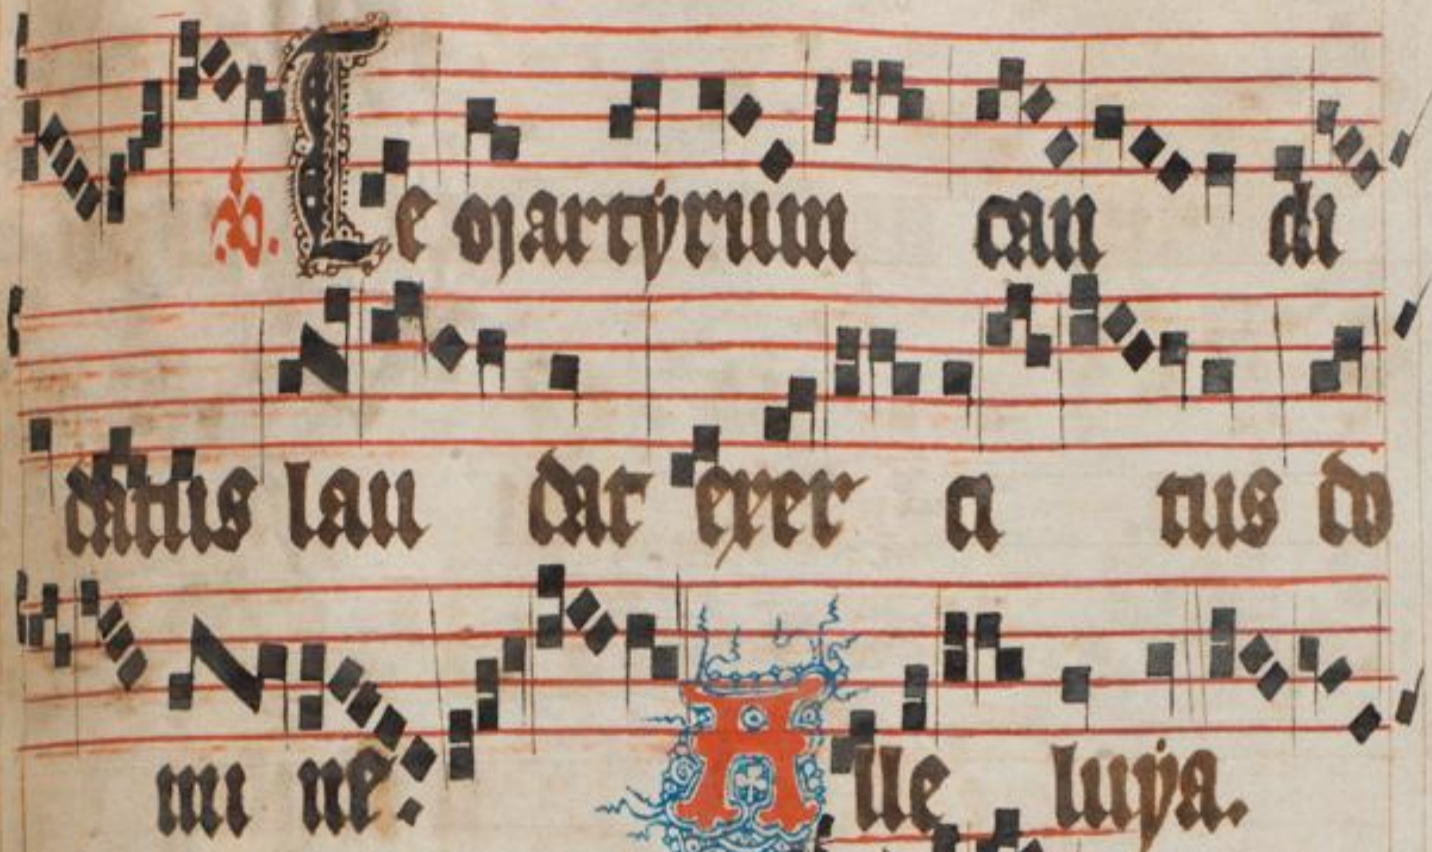 ℣. Te martẏrum can di
datus lau dat exer ci tus do
mi ne: Alle luẏa.